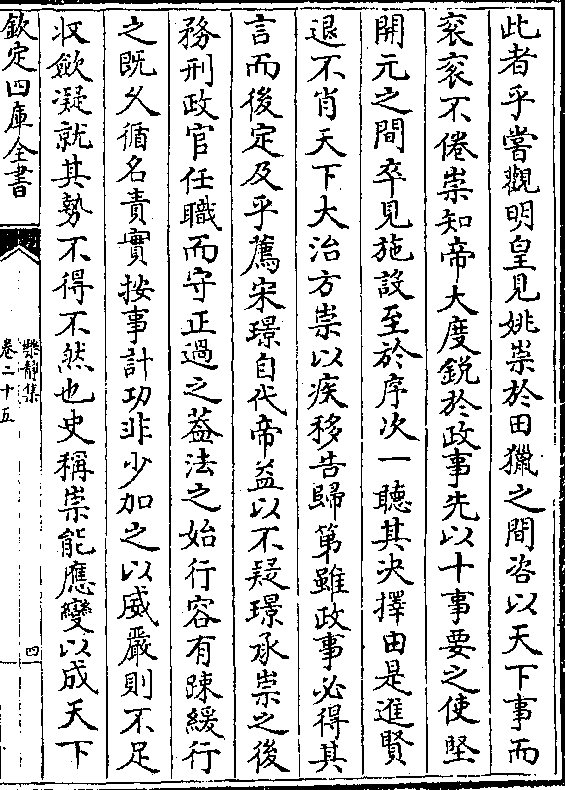 此者乎嘗觀明皇見姚崇於田獵之間咨以天下事而
衮衮不倦崇知帝大度銳於政事先以十事要之使堅
開元之間卒見施設至於序次一聽其决擇由是進賢
退不肖天下大治方崇以疾移告歸第雖政事必得其
言而後定及乎薦宋璟自代帝益以不疑璟承崇之後
務刑政官任職而守正過之葢法之始行容有踈緩行
之既乆循名責實按事計功非少加之以威嚴則不足
収斂凝就其勢不得不然也史稱崇能應變以成天下
欽定四庫全書
樂靜集
卷二十五
四